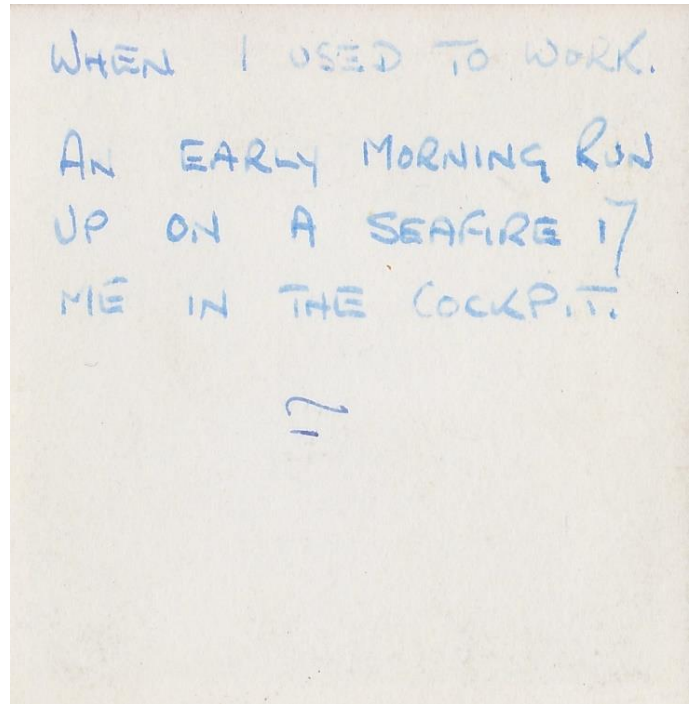 WHEN I USED TO WORK.
AN EARLY MORNING RUN
UP ON A SEAFIRE 17
ME IN THE COCKPIT.